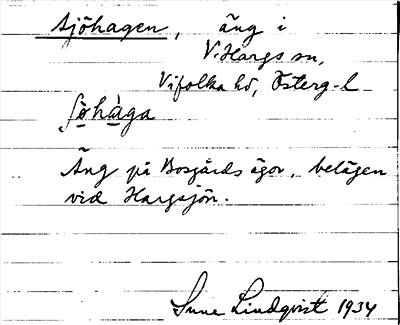 Sjöhagen, äng i
V. Hargs sn,
Vifolka hd, Österg-l
ʃö̀hàga
Äng på Bosgårds ägor, belägen
vid Hargsjön.
Sune Lindqvist 1934